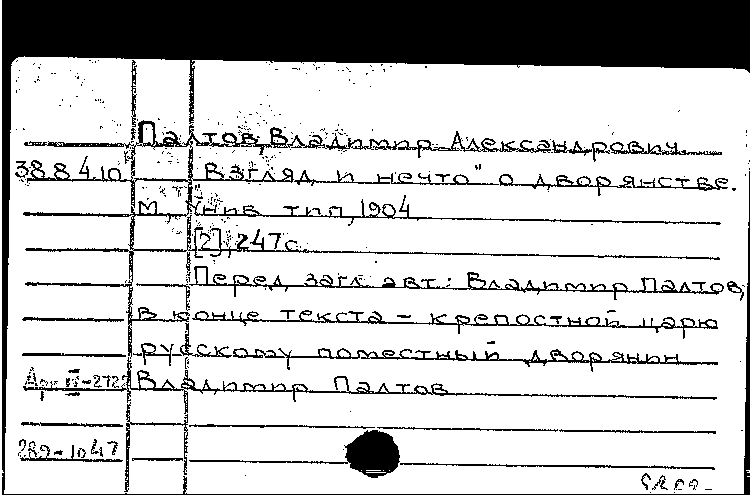 Палтов, Владимир Александрович.
38.8.4.10 Взгляд и нечто" о дворянстве.
М., Унив. тип., 1904
[2], 247 с.
Перед загл. авт.: Владимир Палтов,
в конце текста – крепостной царю
русскому поместный дворянин
Арх II-2722 Владимир Палтов
289-1047